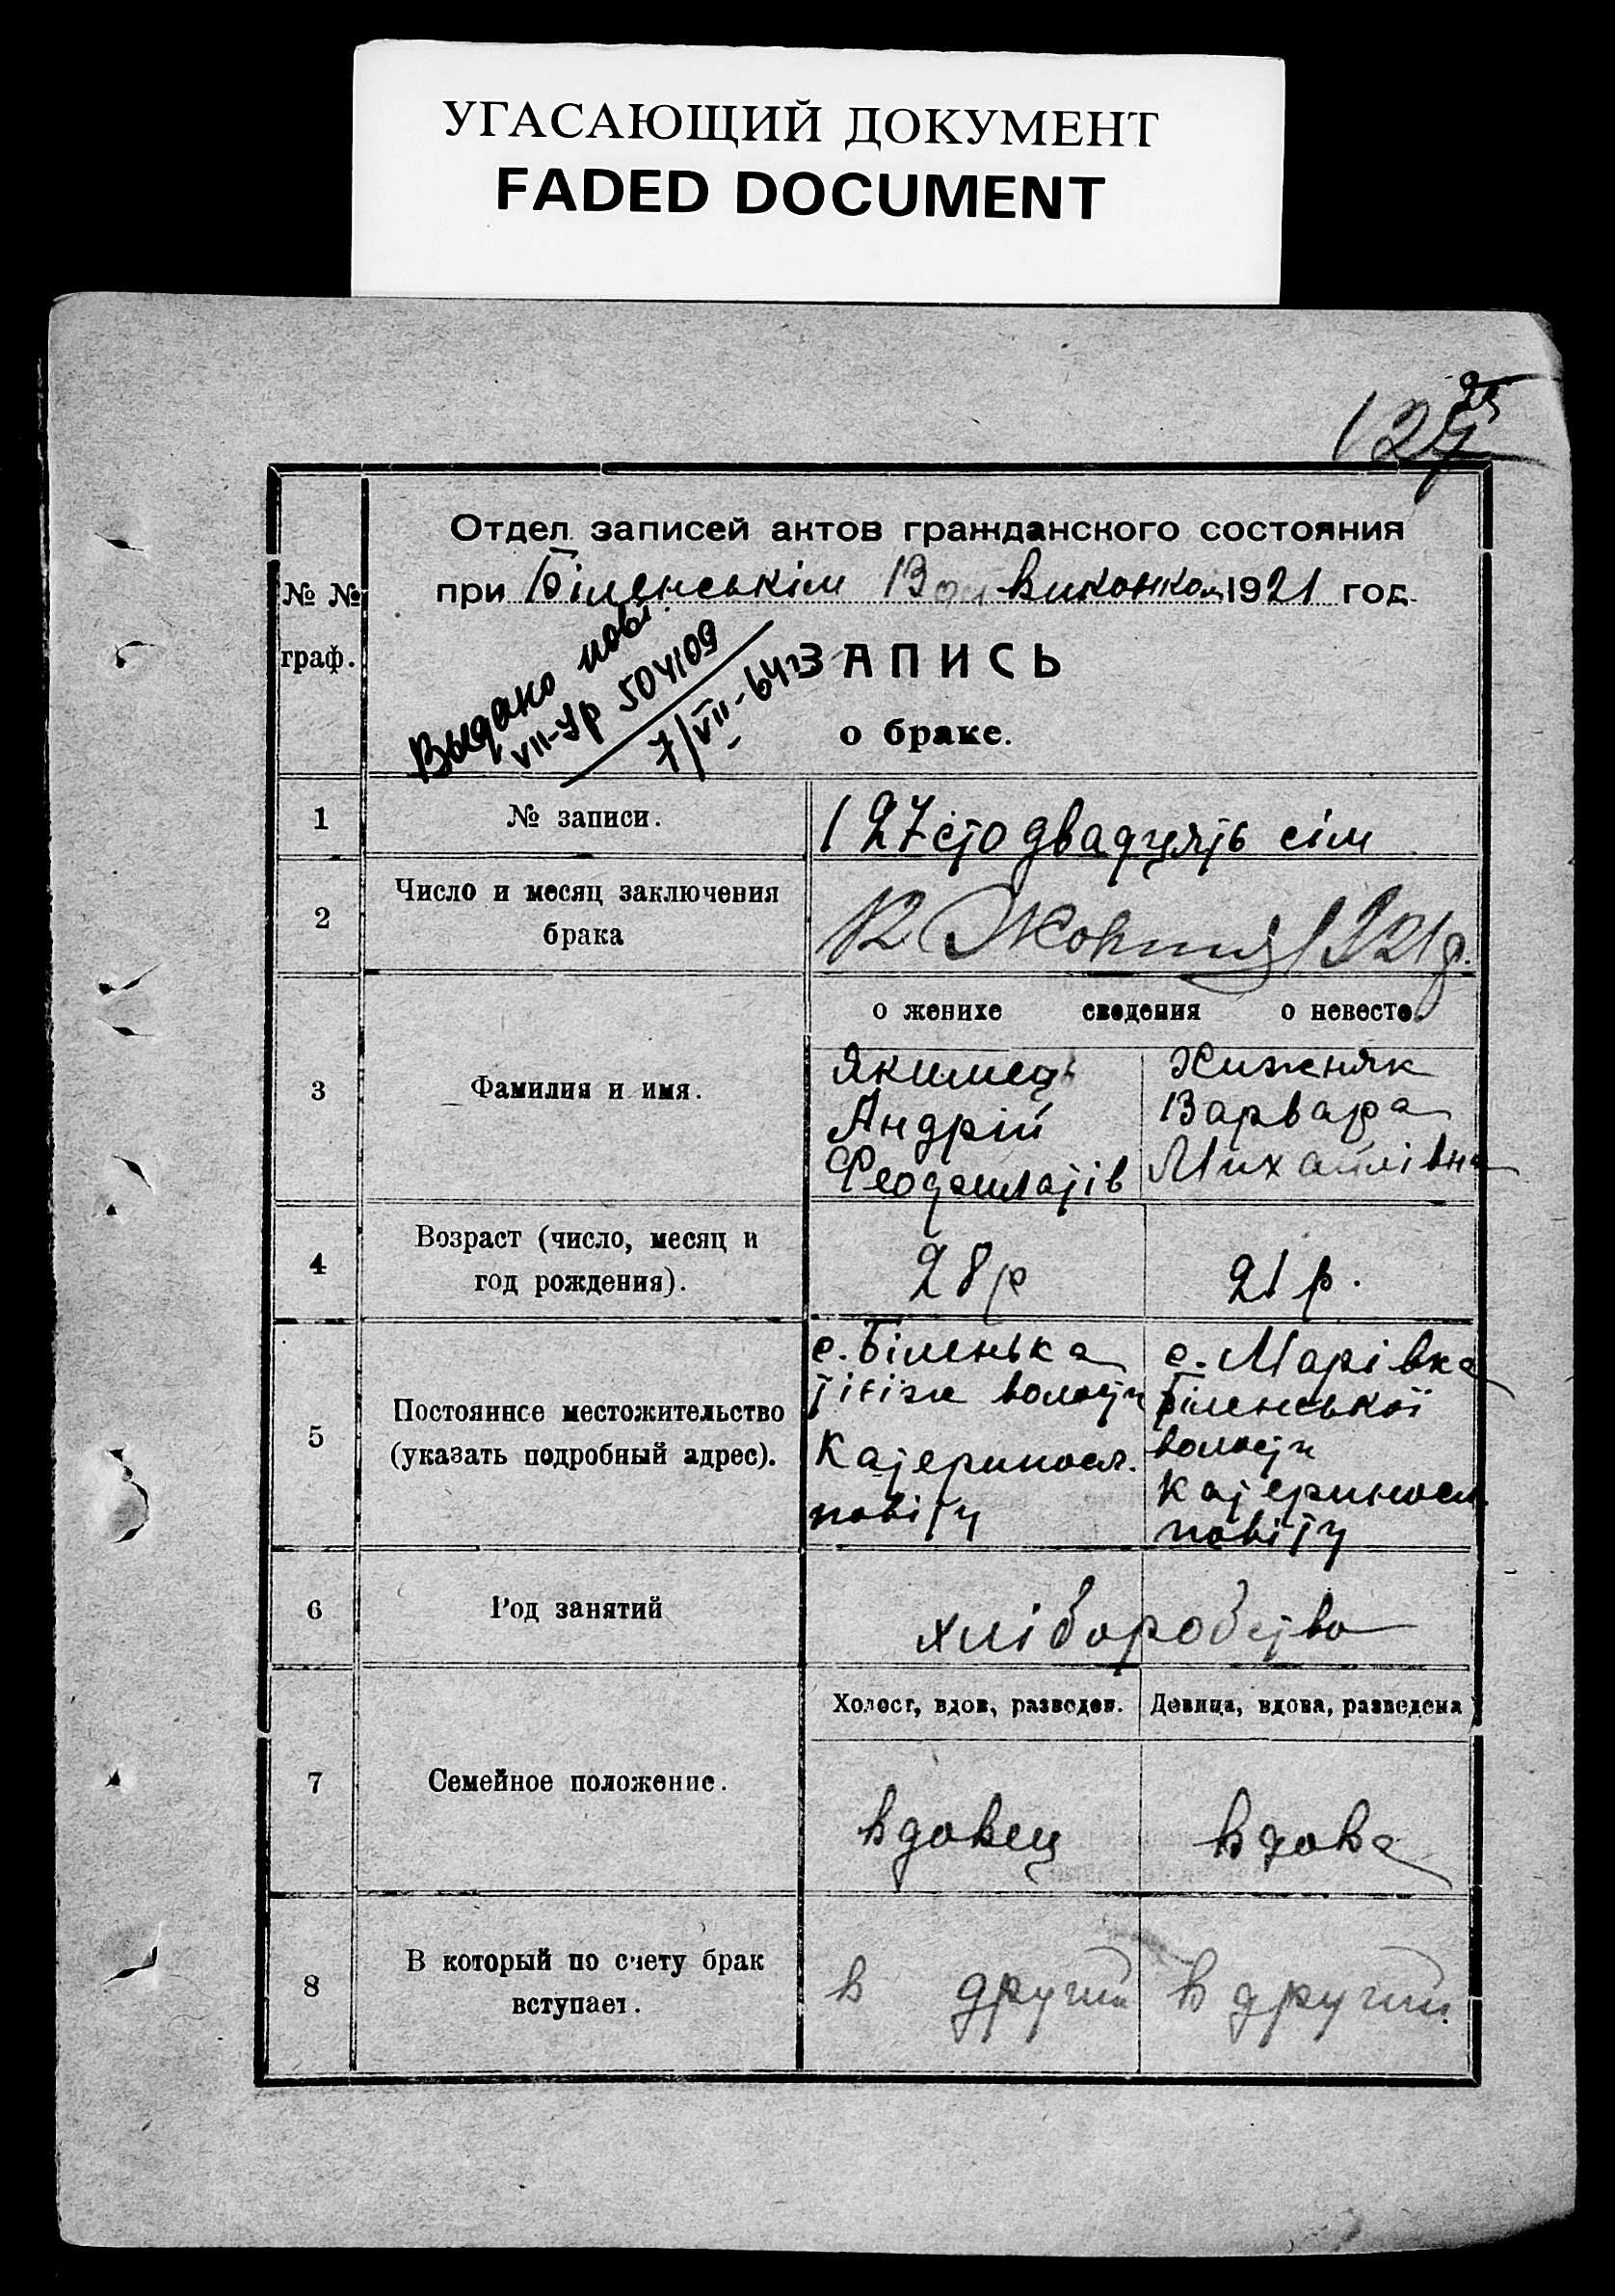 УГАСАЮЩИЙ ДОКУМЕНТ
FADED DOCUMENT
127
Отдел записей актов гражданского состояния
при Біленськім Вол Виконком 1921 год
№ №
граф.
Выдано нові
VII-Ур 504109
7/VII-64г
ЗАПИСЬ
о браке.
1 № записи. 127 сто двадцять сім
2 Число и месяц заключения
брака
12 Жовтня 1921 р.
о женихе сведения о невесте
3 Фамилия и имя.
Якимець Хижняк
Андрій Варвара
Феодемлатів Михайлівна
4 Возраст (число, месяц и
год рождения).
28 р 21 р.
5 Постоянное местожительство
(указать подробный адрес).
с. Біленька с. Марівка
тієїж волости Біленської
волости
Катериносл. Катериносл.
повіту повіту
6 Род занятий хліборобство
Холост, вдов, разведен. Девица, вдова, разведена
7 Семейное положение.
вдовец вдова
8 В который по счету брак
вступает.
в другий в другий.